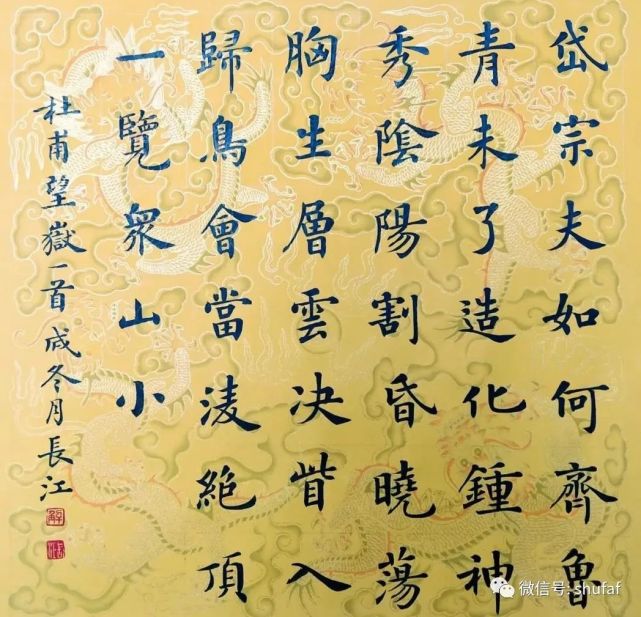 岱宗夫如何齊魯
青未了造化鍾神
秀陰陽割昏曉蕩
胸生層雲决眥入
歸鳥會當淩絕頂
一覽衆山小
杜甫望嶽一首戌冬月長江
微信号: shufaf